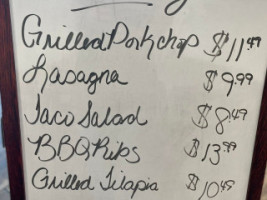 Grilled Porkchop $11.49
Lasagna $9.99
Taco Salad $8.49
BBQ Ribs $13.99
Grilled Tilapia $10.49